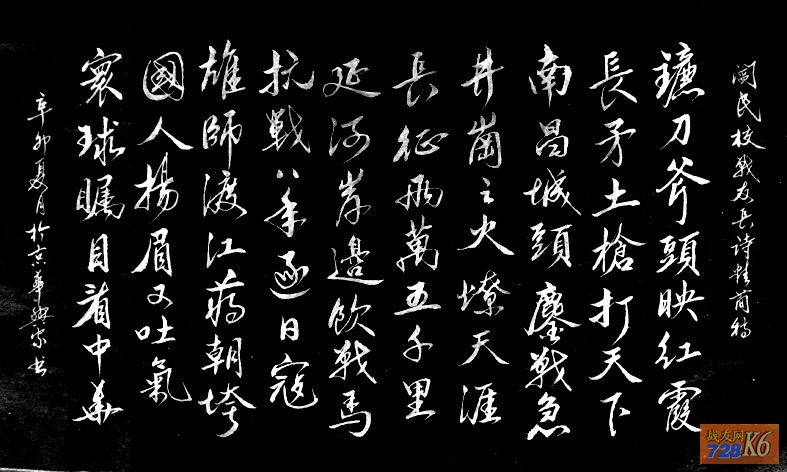 民校戰友長詩精簡稿
鐮刀斧頭映紅霞
長矛土槍打天下
南昌城頭鏖戰急
井崗之火燎天涯
長征兩萬五千里
延河岸邊飲戰馬
抗戰八年逐日寇
雄師渡江蔣朝垮
國人揚眉又吐氣
寰球矚目看中華
辛卯夏月於京華 书
战友网
728 K6